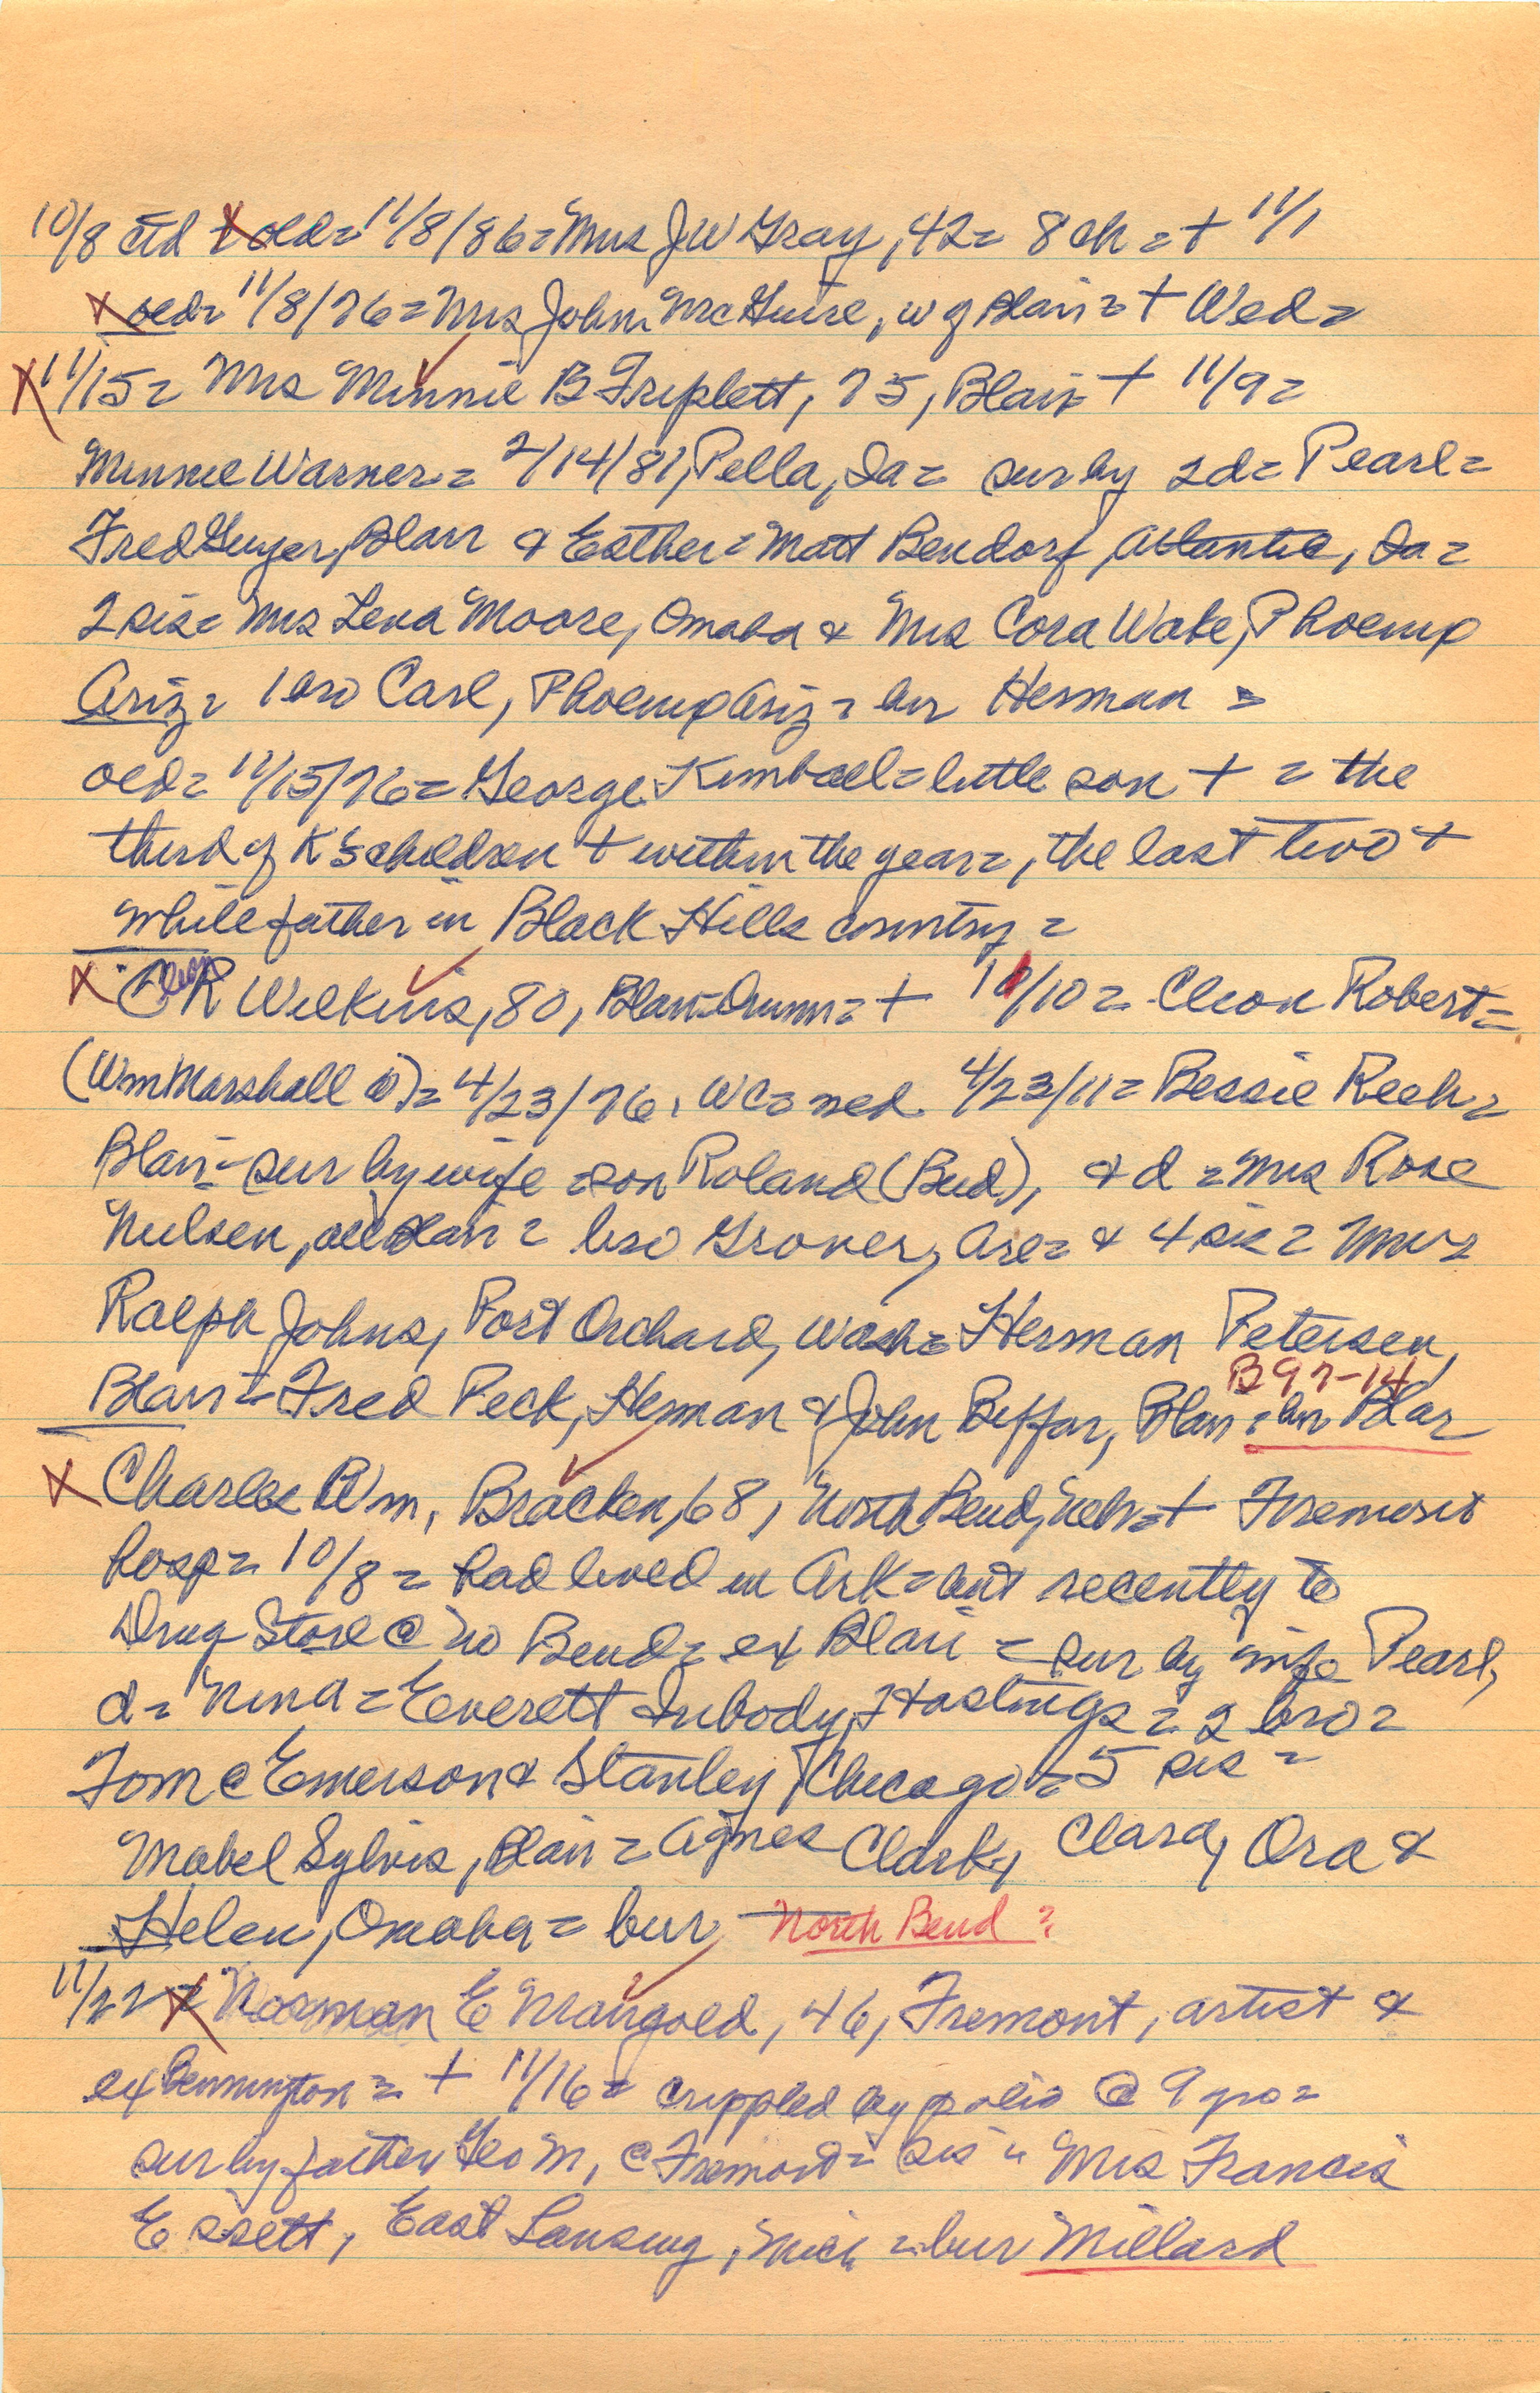 10/8 ctd X old= 11/8/86= Mrs J W Gray, 42= 8 ch = + 11/1
X old= 11/8/76= Mrs John McGuire, w of Blair = + Wed=
X 11/15= Mrs Minnie B Triplett, 75, Blair + 11/9=
Minnie Warner= 2/14/81, Pella, Ia= sur by 2 d= Pearl=
Fred Guyer, Blair & Esther= Matt Bendorf, Atlantic, Ia=
2 sis= Mrs Lena Moore, Omaha & Mrs Cora Wake, Phoenix
Ariz= 1 bro Carl, Phoenix Ariz= bur Herman =
old= 11/15/76= George Kimball= little son + = the
third of K's children + within the year=, the last two +
while father in Black Hills country=
X C R Wilkins, 80, Blair = + 11/10= Cleon Robert=
(Wm Marshall W)= 4/23/76, WC= med 4/23/11= Bessie Reeh=
Blair= sur by wife =son Roland (Bud), & d = Mrs Rose
Nielsen, all Blair = bro Grover, Ore= & 4 sis = Mmes
Ralph Johns, Port Orchard, Wash= Herman Petersen,
B 97-14
Blair= Fred Peck, Herman & John Beffar, Blair = bur Blar
X Charles Wm, Bracken, 68, North Bend, Neb=+ Fremont
hosp= 10/8= had lived in Ark= but recently to
Drug Store @ No Bend= ex Blair = sur by wife Pearl,
d= Nina= Everett Inbody, Hastings= 2 bro=
Tom @ Emerson & Stanley, Chicago= 5 sis =
Mabel Sylvis, Blair= Agnes Clark, Clara, Ora &
Helen, Omaha= bur North Bend?
11/22 X Norman E Mangold, 46, Fremont, artist &
ex Bennington = + 11/16= crippled by polio @ 9 yrs=
sur by father Geo M, @ Fremont= sis = Mrs Francis
Essett, East Lansing, Mich =bur Millard